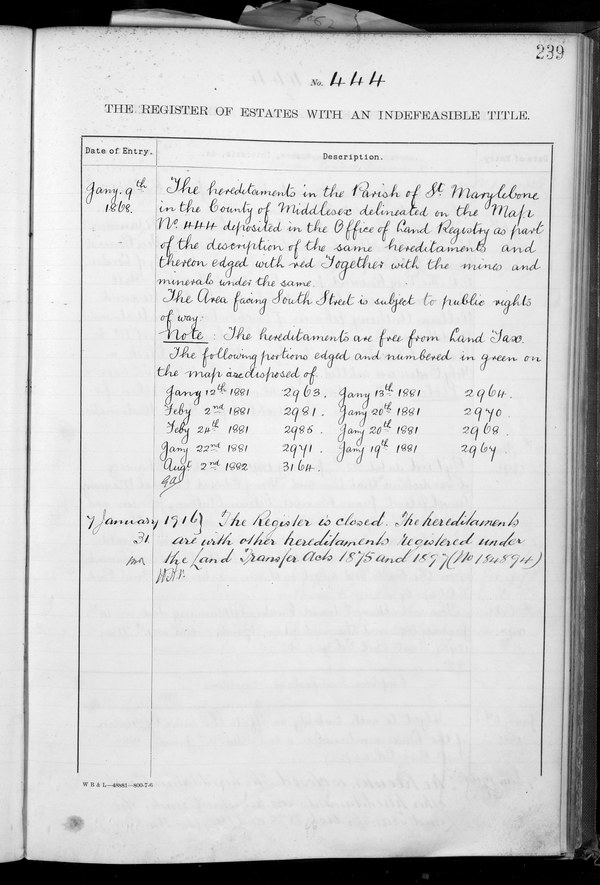 239
No. 444
THE REGISTER OF ESTATES WITH AN INDEFEASIBLE TITLE.
Date of Entry. Description.
Jany. 9th 1868. The hereditaments in the Parish of St. Marylebone
in the County of Middlesex delineated on the Map
No. 444 deposited in the Office of Land Registry as part
of the description of the same hereditaments and
thereon edged with red Together with the mines and
minerals under the same.
The Area facing South Street is subject to public rights
of way.
Note : The hereditaments are free from Land Tax.
The following portions edged and numbered in green on
the map are disposed of
Jany 12th 1881 2963. Jany 13th 1881 2964.
Feby 2nd 1881 2981. Jany 20th 1881 2970.
Feby 24th 1881 2986. Jany 20th 1881 2968.
Jany 22nd 1881 2971. Jany 19th 1881 2967.
Augt 2nd 1882 3164.
7 January 1916} The Register is closed. The hereditaments
31 are with other hereditaments registered under
the Land Transfer Acts 1875 and 1897 (No 184894)
W R & L—48881—800-7-6